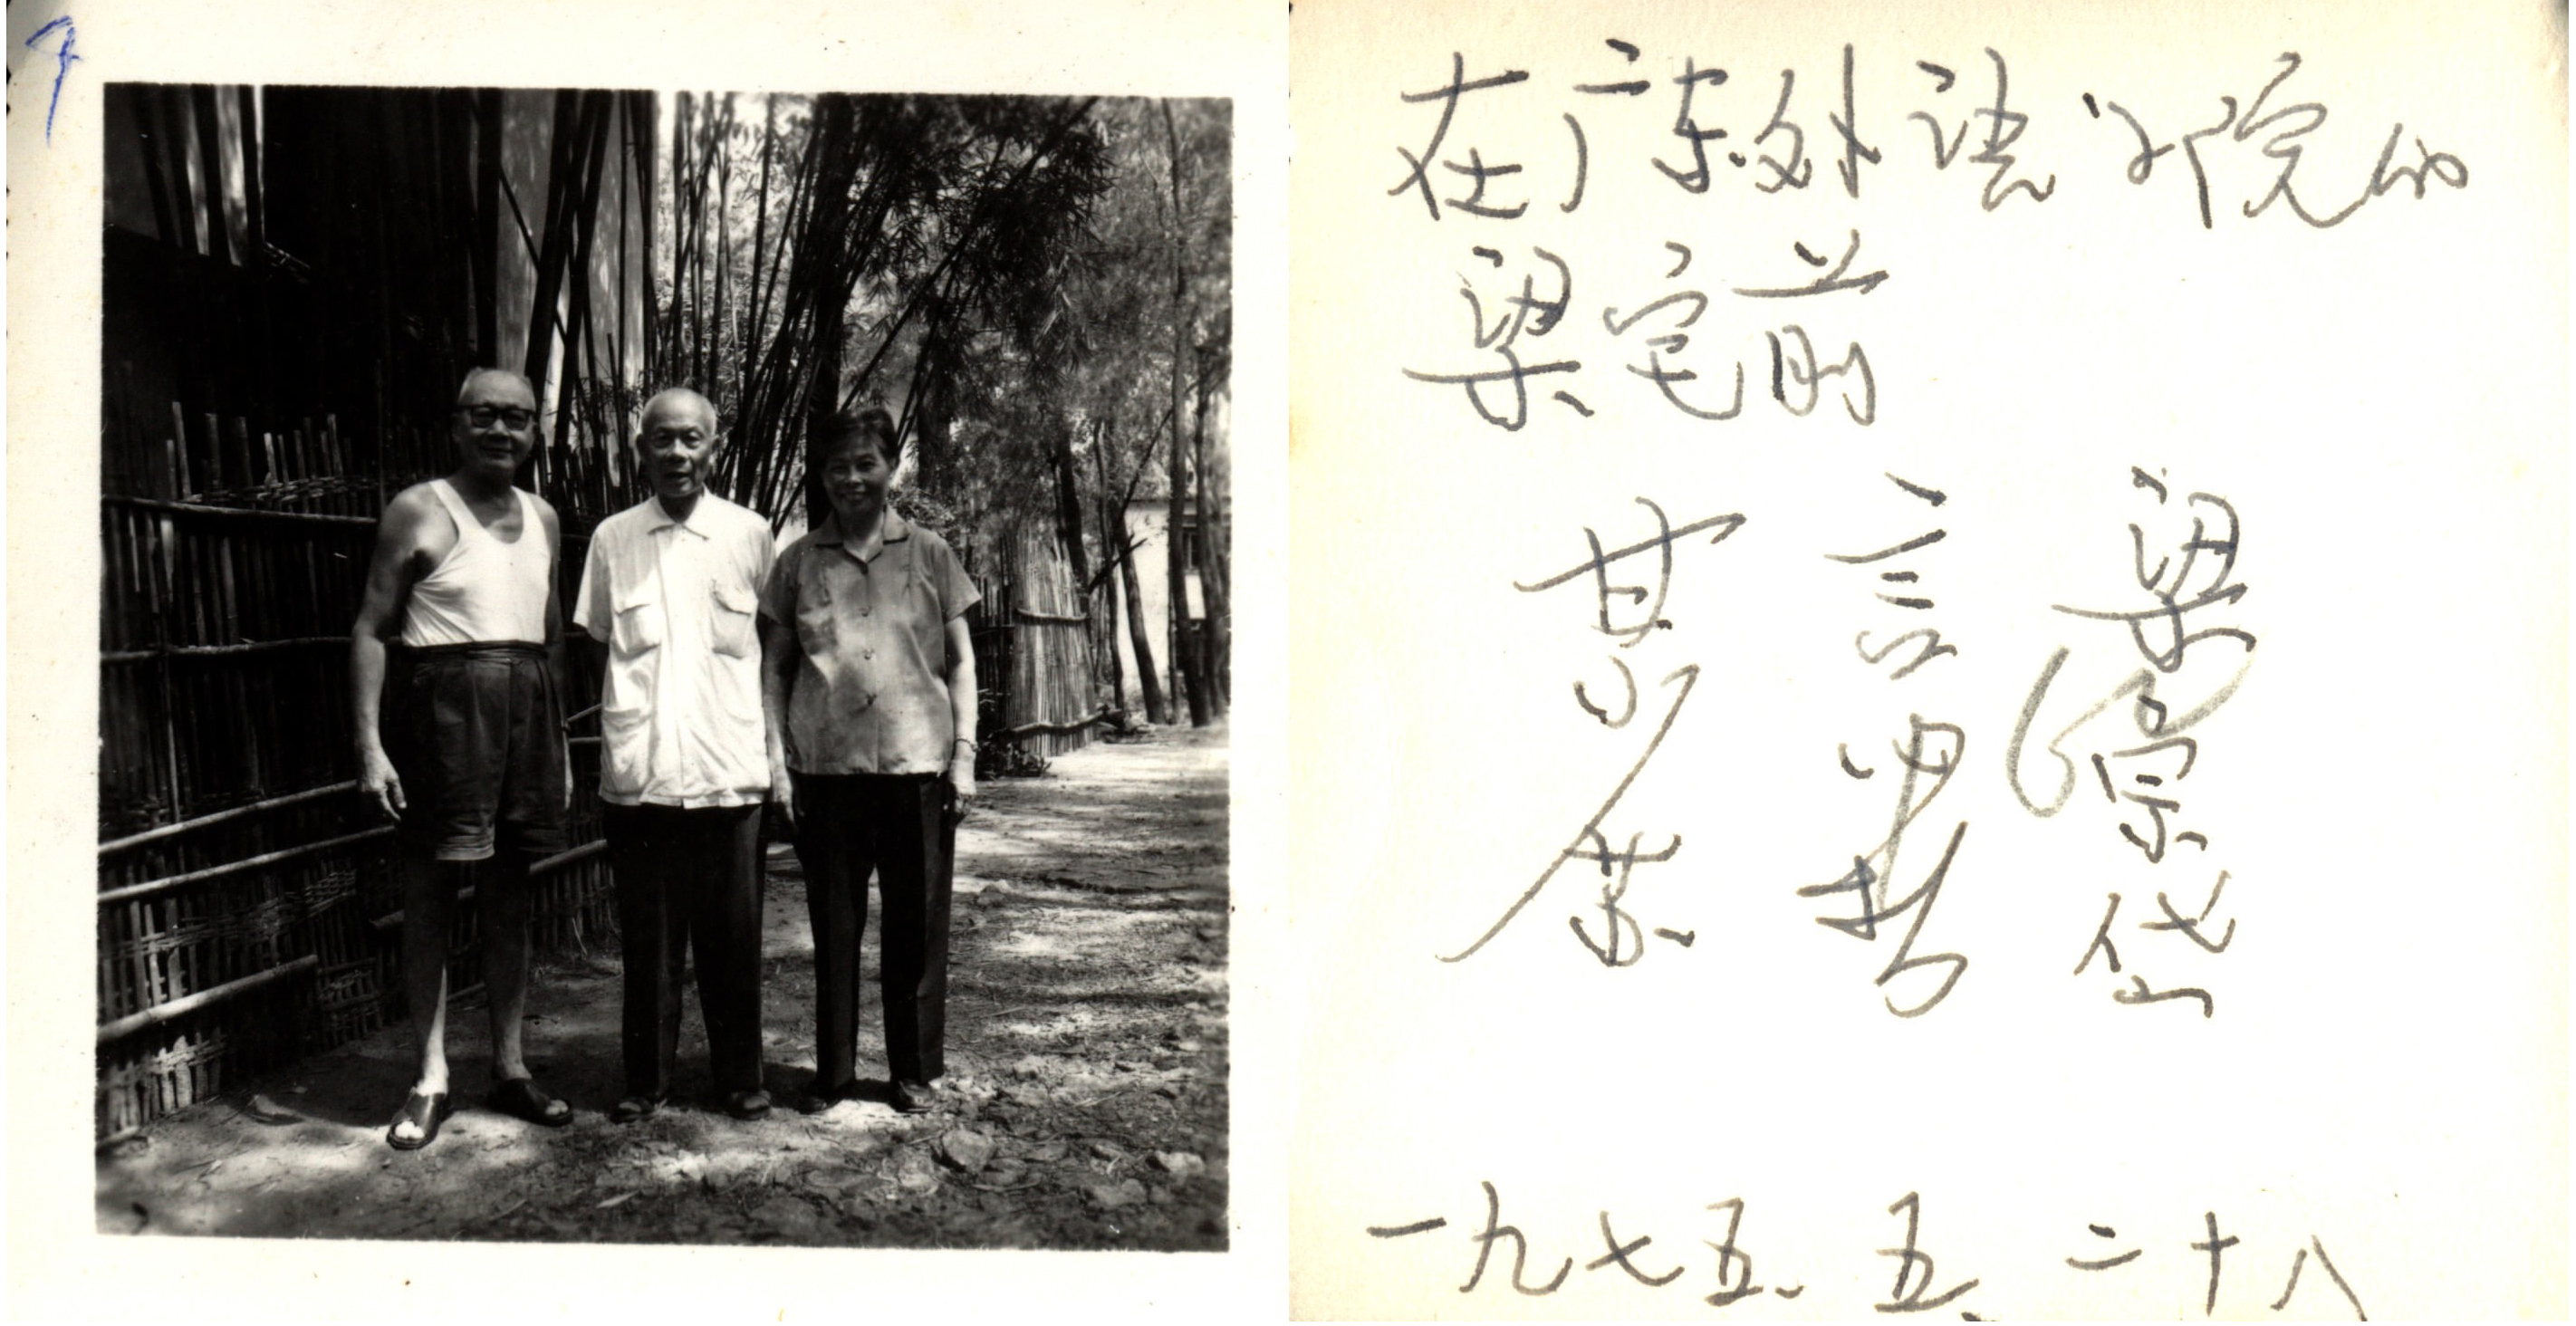 在广东外语学院的
梁宅前
甘少苏
梁宗岱
一九七五.五.二十八